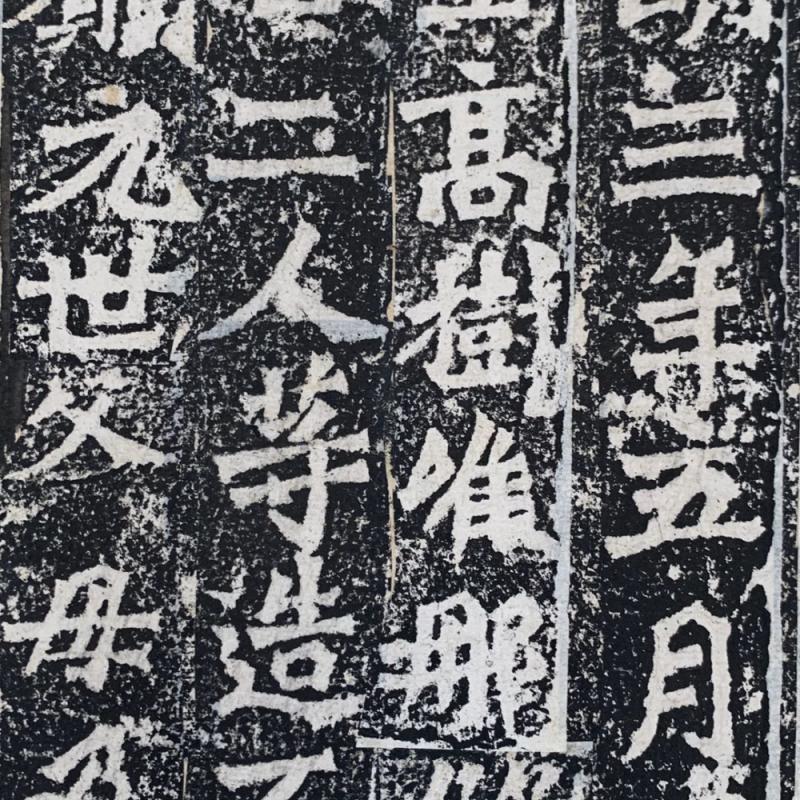 三年五月
高樹唯那
二人等造
元世父母